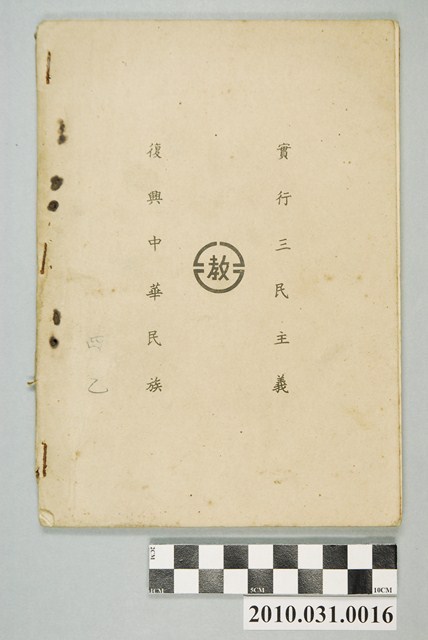 實行三民主義
教
復興中華民族
四
乙
2CM
1CM
5CM
10CM
2010.031.0016